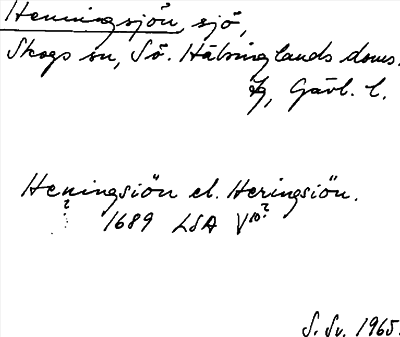 Henningsjön, sjö,
Skogs sn, Sö. Hälsinglands doms.
Gävl. l.
Heningsiön el. Heringsiön.
? 1689 LSA V10?
S. Sv. 1965.